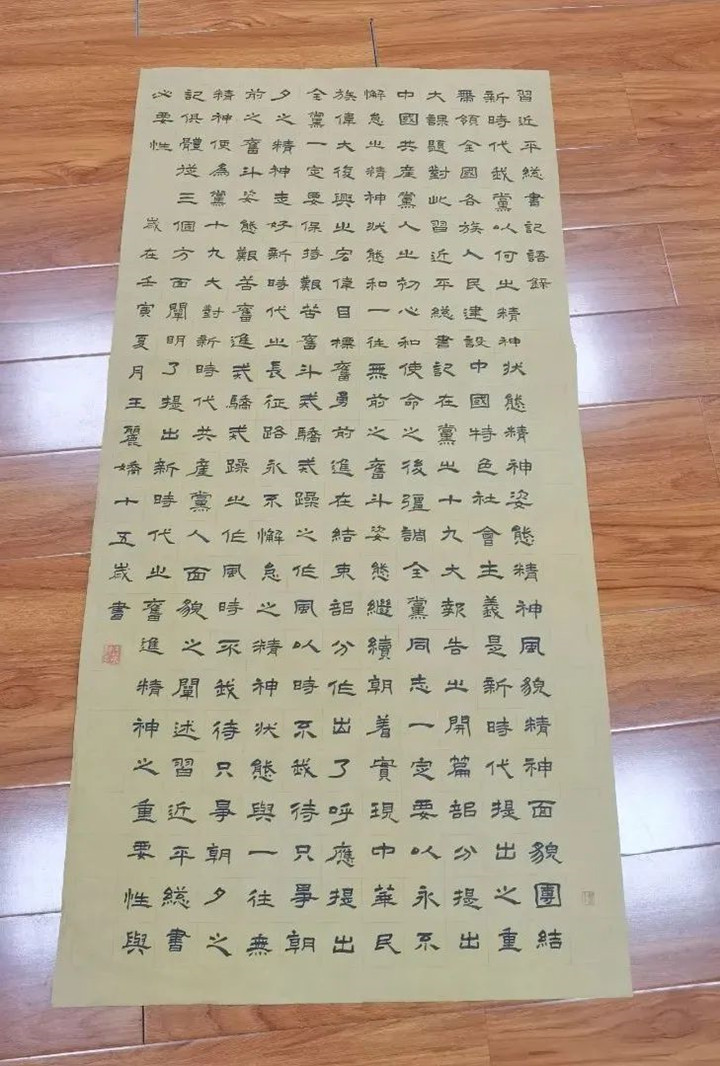 習近平總書記語錄
新時代我黨以何之精神狀態精神姿態精神風貌精神面貌團結
帶領全國各族人民建設中國特色社會主義是新時代提出之重
大課題對此習近平總書記在黨之十九大報告之開篇部分提出
中國共產黨人之初心和使命之後彊調全黨同志一定要以永不
懈怠之精神狀態和一往無前之奮斗姿態繼續朝着實現中華民
族偉大復興之宏偉目標奮勇前進在結束部分作出了呼應提出
全黨一定要保持艱苦奮斗戒驕戒躁之作風以時不我待只爭朝
夕之精神走好新時代之長征路永不懈怠之精神狀態與一往無
前之奮斗姿態艱苦奮進戒驕戒躁之作風時不我待只爭朝夕之
精神使為黨十九大對新時代共產黨人面貌之闡述習近平總書
記俱體從三個方面闡明了提出新時代之奮進精神之重要性與
必要性
歲在壬寅夏月王麗嬌十五歲書